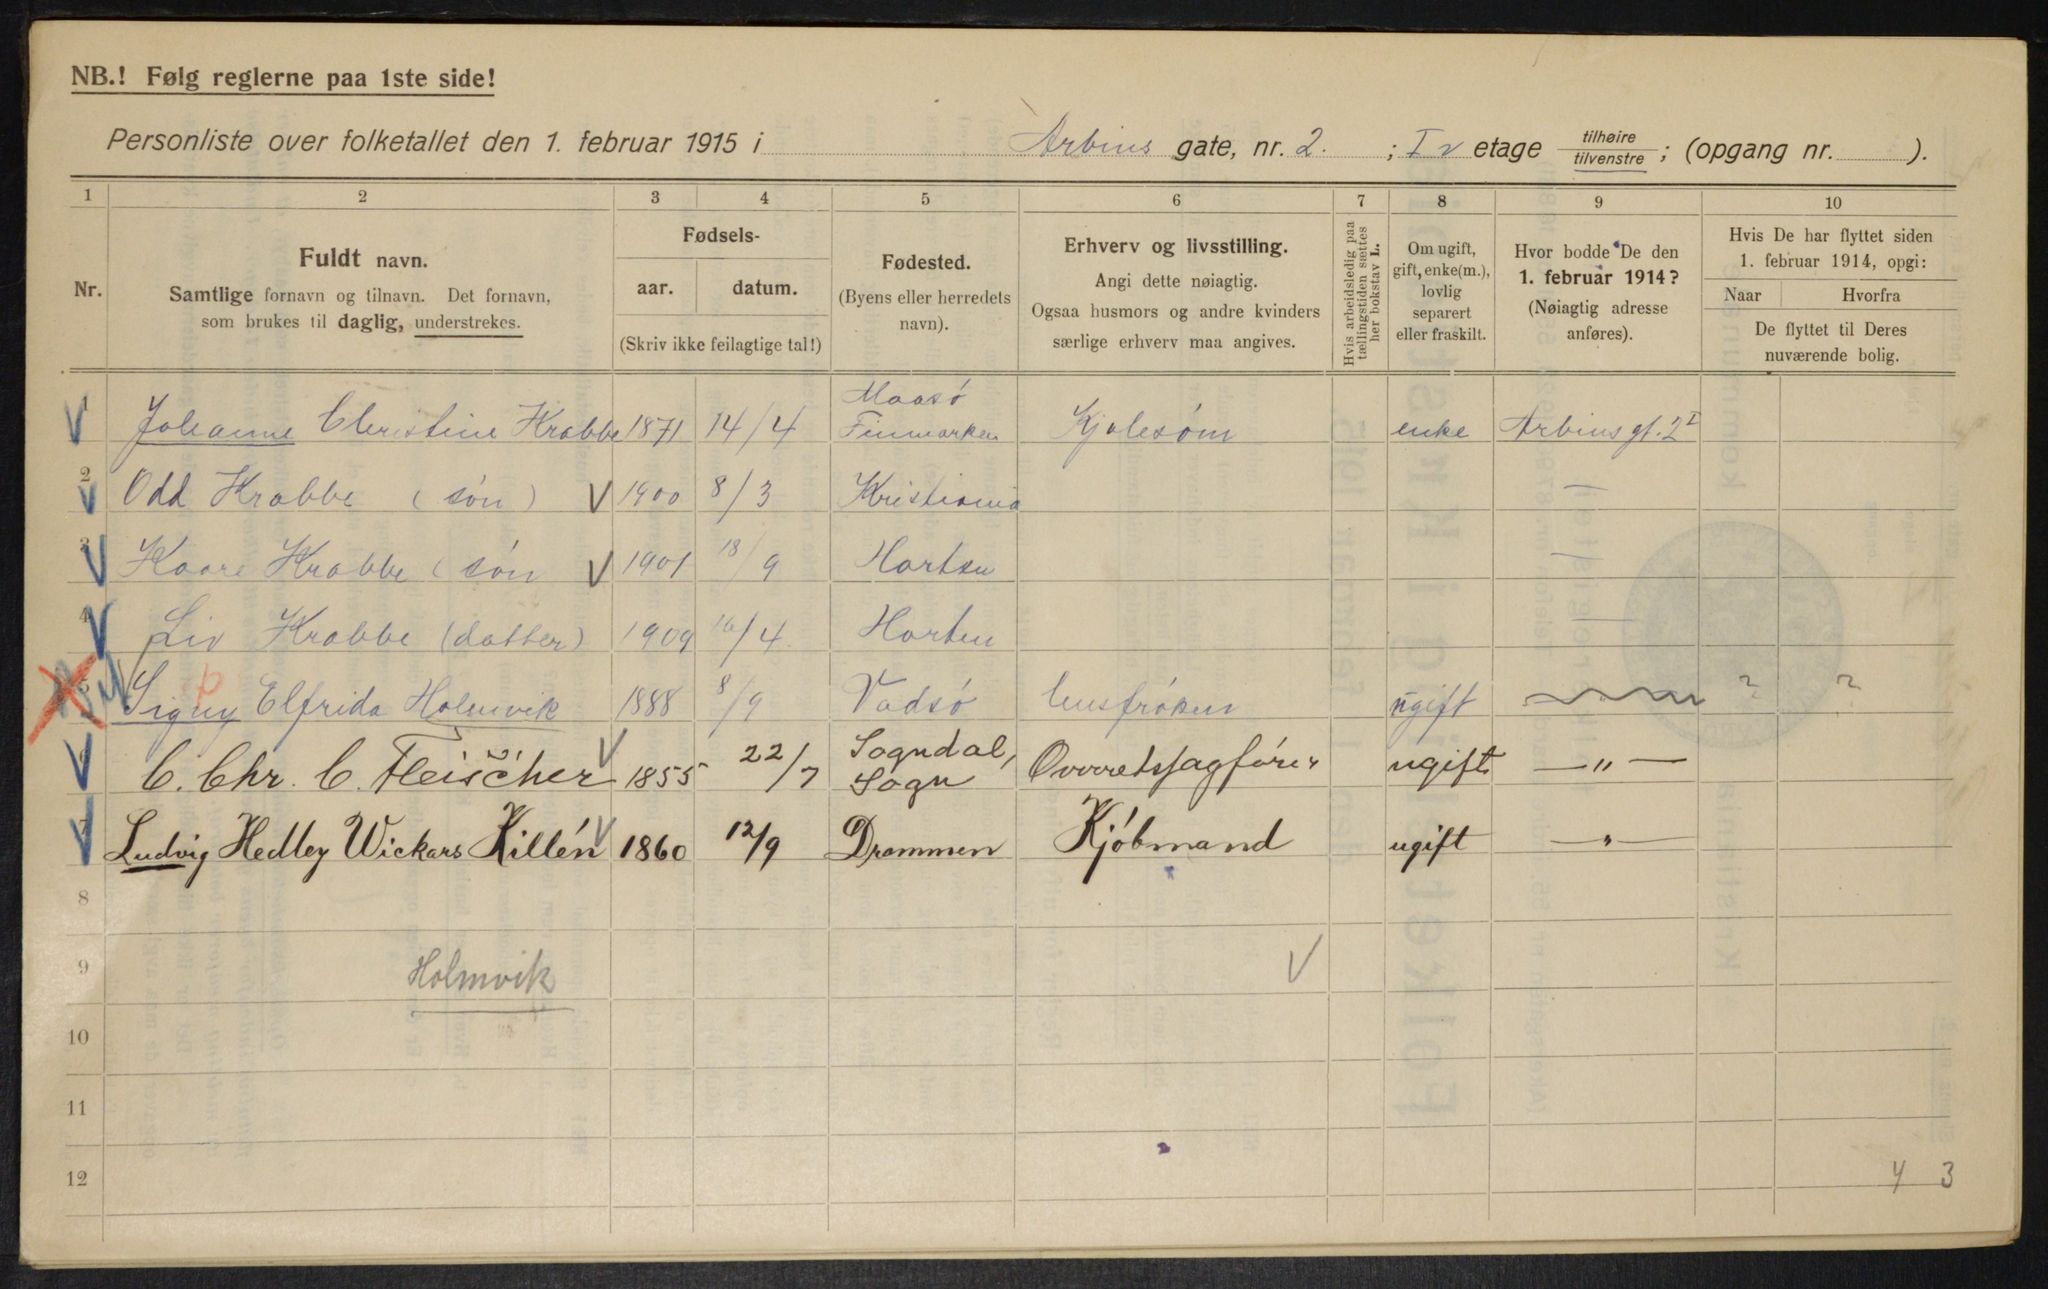 NB.! Følg reglerne paa 1ste side!
Personliste over folketallet den 1. februar 1915 i Arbins gate, nr. 2. ; I v etage tilhøire / tilvenstre ; (opgang nr. ).
1 2 3 4 5 6 7 8 9 10
Nr.
Fuldt navn.
Samtlige fornavn og tilnavn. Det fornavn,
som brukes til daglig, understrekes.
Fødsels-
aar. datum.
(Skriv ikke feilagtige tal!)
Fødested.
(Byens eller herredets
navn).
Erhverv og livsstilling.
Angi dette nøiagtig.
Ogsaa husmors og andre kvinders
særlige erhverv maa angives.
Hvis arbeidsledig paa
tællingstiden sættes
her bokstav L.
Om ugift,
gift, enke(m.),
lovlig
separert
eller fraskilt.
Hvor bodde De den
1. februar 1914?
(Nøiagtig adresse
anføres).
Hvis De har flyttet siden
1. februar 1914, opgi:
Naar Hvorfra
De flyttet til Deres
nuværende bolig.
1 Johanne Christine Krabbe 1871 14/4 Maasö Finmarken Kjolesöm enke Arbins gt. 2 I
2 Odd Krabbe (sön) 1900 8/3 Kristiania —
3 Kaare Krabbe (sön 1901 18/9 Horten —
4 Liv Krabbe (datter) 1909 /4 Horten —
5 Signy Elfrida Holmvik 1888 8/9 Vadsö husfröken ugift ? ?
6 C. Chr. C. Fleischer 1855 22/7 Sogndal, Sogn Overretssagförer ugift —"—
7 Ludvig Hedley Wickars Killén 1860 12/9 Drammen Kjöbmand ugift —"—
8
9 Holmvik
10
11
12 4 3